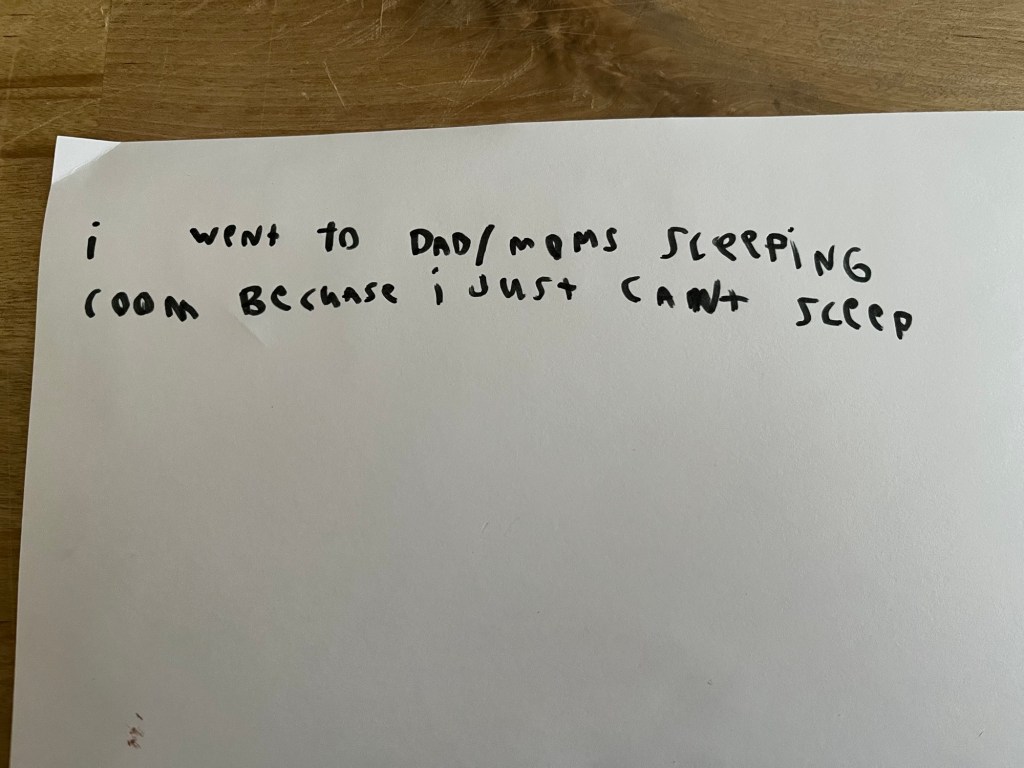 i went to DAD/moms sleepiNG
room BecuaSe i Just CANt sleep